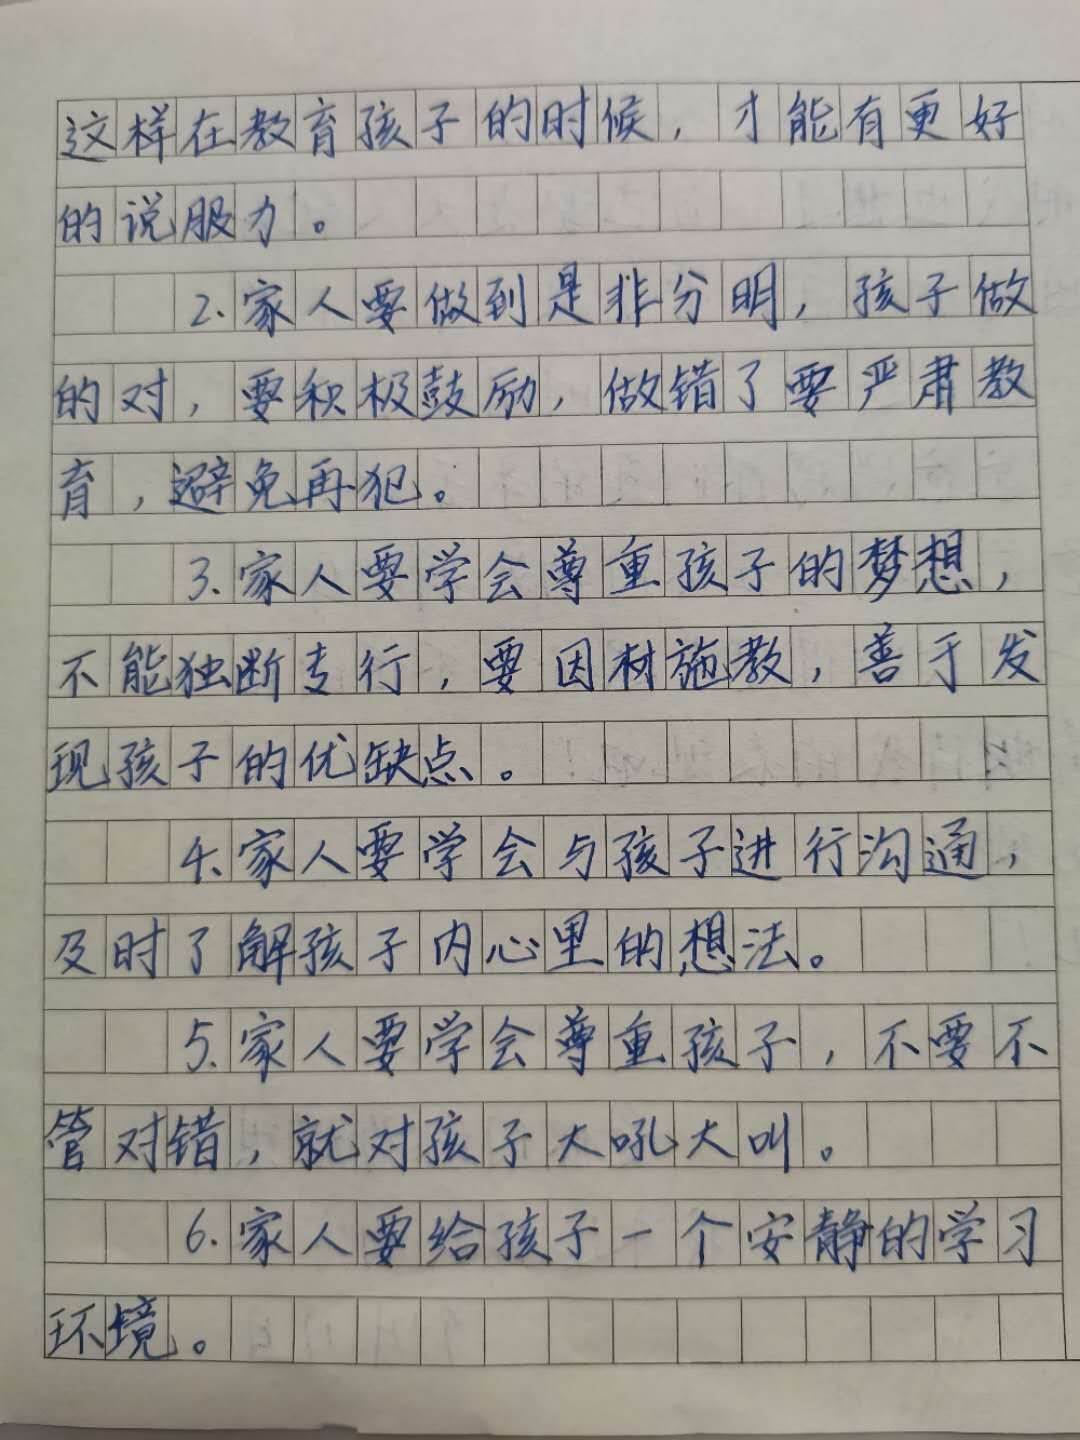 这样在教育孩子的时候，才能有更好
的说服力。
2.家人要做到是非分明，孩子做
的对，要积极鼓励，做错了要严肃教
育，避免再犯。
3.家人要学会尊重孩子的梦想，
不能独断专行，要因材施教，善于发
现孩子的优缺点。
4.家人要学会与孩子进行沟通，
及时了解孩子内心里的想法。
5.家人要学会尊重孩子，不要不
管对错，就对孩子大吼大叫。
6.家人要给孩子一个安静的学习
环境。